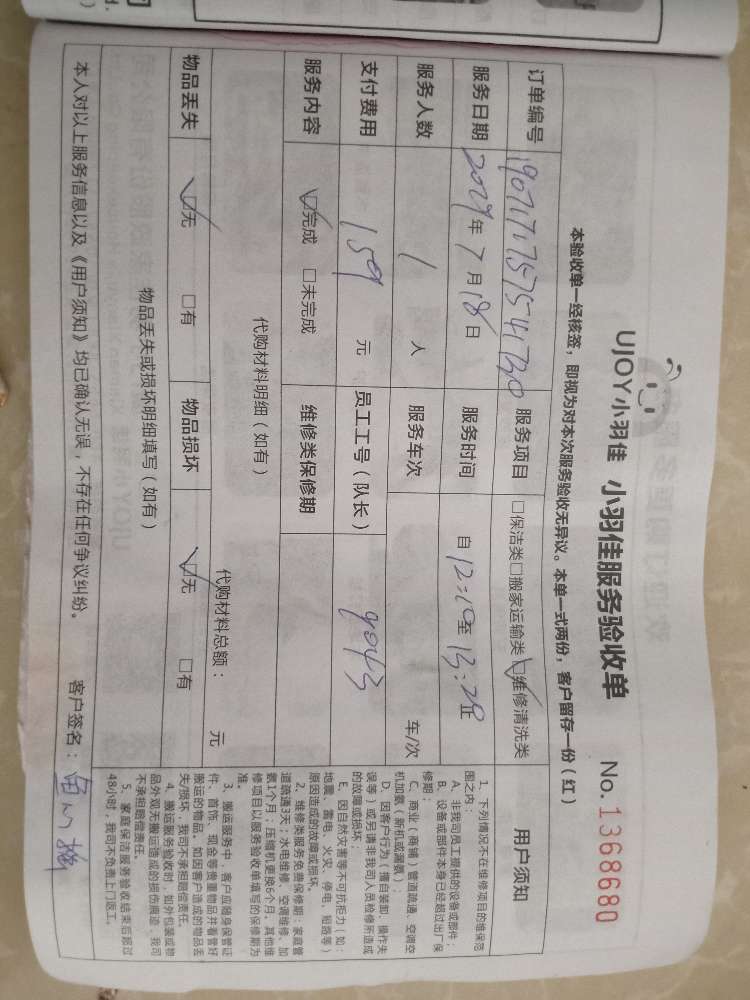 UJOY小羽佳 小羽佳服务验收单 No.1368680
本验收单一经核签，即视为对本次服务验收无异议。本单一式两份，客户留存一份（红）
订单编号 服务项目 □保洁类□搬家运输类☑维修清洗类
服务日期 年7月18日 服务时间 自12:10至13:20止
服务人数 1人 服务车次 车/次
支付费用 159元 员工工号（队长） 9043
服务内容 ☑完成 □未完成 维修类保修期
代购材料明细（如有） 代购材料总额： 元
物品丢失 ☑无 □有 物品损坏 ☑无 □有
物品丢失或损坏明细填写（如有）
本人对以上服务信息以及《用户须知》均已确认无误，不存在任何争议纠纷。 客户签名：
用户须知
1、下列情况不在维修项目的维保范
围之内：
A、非我司员工提供的设备或部件；
B、设备或部件本身已经超过出厂保
修期；
C、商业（商铺）管道疏通、空调空
机加氨（新机或漏氨）；
D、因客户行为（擅自装卸、操作失
误等）或另请非我司人员检修所造成
的故障或损坏；
E、因自然灾害等不可抗拒力（如：
地震、雷电、火灾、停电、短路等）
原因造成的故障或损坏。
2、维修类服务免费保修期：家庭管
道疏通3天；水电维修、空调维修、加
氨1个月；压缩机更换6个月，其他维
修项目以服务验收单填写的保修期为
准。
3、搬运服务中，客户应随身保管证
件、首饰、现金等贵重物品并看管好
搬运的物品，如因客户造成的物品丢
失/损坏，我司不承担赔偿责任。
4、搬运服务验收时，如外包装或物
品外观无搬运造成的损伤痕迹，我司
不承担赔偿责任。
5、家庭保洁服务验收结束后超过
48小时，我司不负责上门返工。